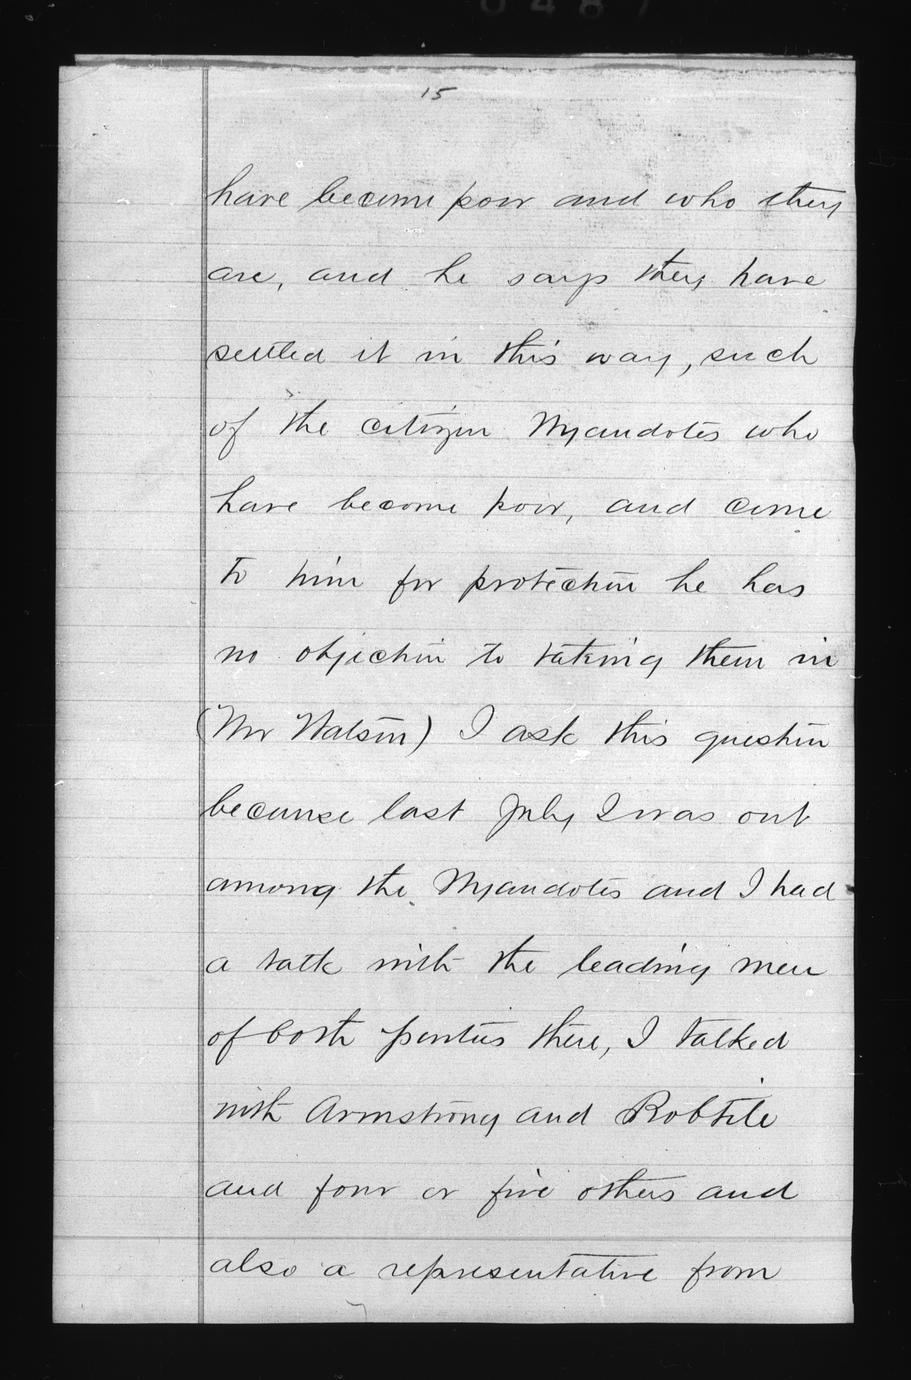 0487
15
have become poor and who they
are, and he says they have
settled it in this way, such
of the citizen Wyandotes who
have become poor, and come
to him for protection he has
no objection to taking them in
(Mr Watson) I ask this question
because last July I was out
among the Wyandotes and I had
a talk with the leading men
of both parties there, I talked
with Armstrong and Robitile
and four or five others and
also a representative from